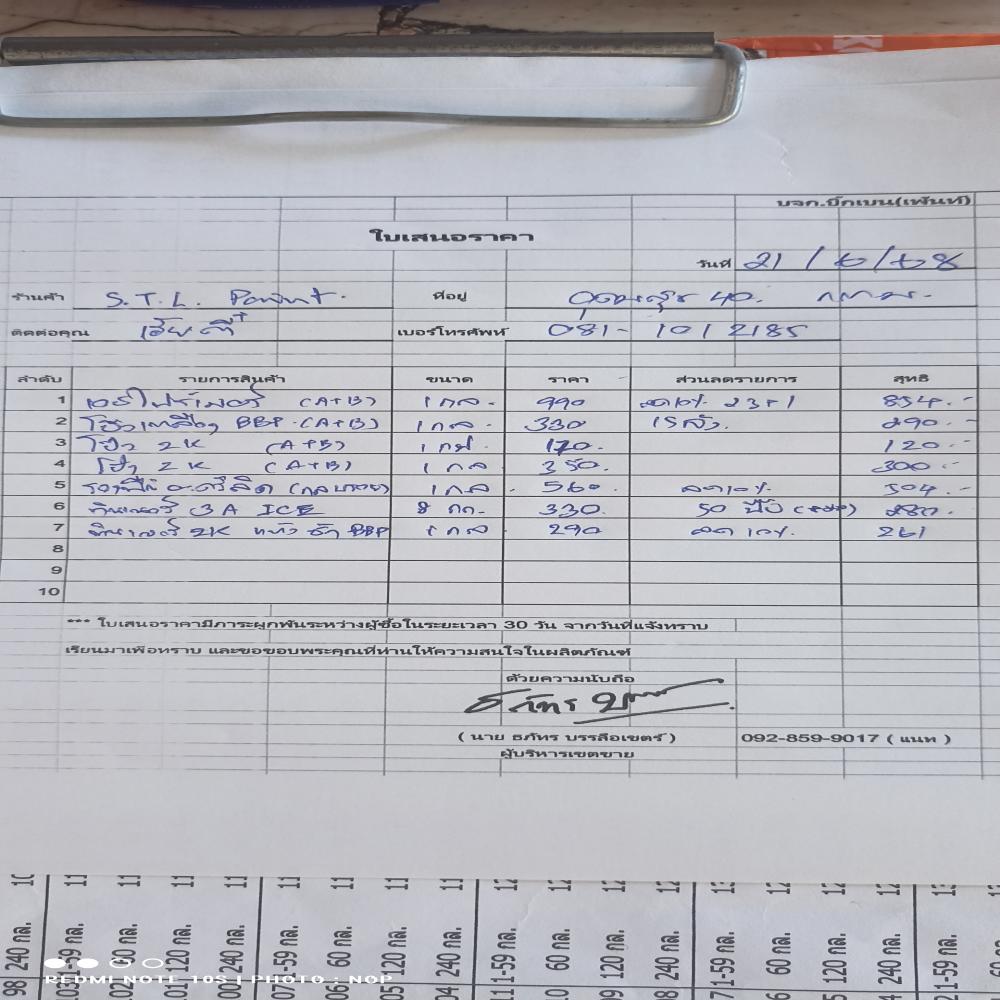 บจก.บิ๊กเบน(เพ้นท์)
ใบเสนอราคา
วันที่ 21 / 6 / 68
ร้านค้า S.T.L. Paint. ที่อยู่ อุดมสุข 40. กทม.
ติดต่อคุณ เบอร์โทรศัพท์ 081- 10 / 2185
ลำดับ รายการสินค้า ขนาด ราคา ส่วนลดรายการ สุทธิ
1 (A+B) 1 กล. 990 ลด10% 23+1 854.-
2 โป๊วเหลือง BBP (A+B) 1 กล. 330 290.-
3 โป๊ว 2K (A+B) 170. 120.-
4 โป๊ว 2K (A+B) 1 กล 350. 300.-
5 1 กล. 560. ลด10% 504.-
6 ทินเนอร์ 3A ICE 8 กก. 330. 50 ปี๊บ 280.-
7 ทินเนอร์ 2K BBP 1 กล 290 ลด 10% 261
8
9
10
*** ใบเสนอราคามีภาระผูกพันระหว่างผู้ซื้อในระยะเวลา 30 วัน จากวันที่แจ้งทราบ
เรียนมาเพื่อทราบ และขอขอบพระคุณที่ท่านให้ความสนใจในผลิตภัณฑ์
ด้วยความนับถือ
( นาย ธภัทร บรรลือเขตร์ ) 092-859-9017 ( แนท )
ผู้บริหารเขตขาย
98 240 กล.
1-59 กล.
60 กล.
120 กล.
240 กล.
1-59 กล.
60 กล.
120 กล.
240 กล.
1-59 กล.
60 กล.
120 กล.
240 กล.
1-59 กล.
60 กล.
120 กล.
240 กล.
1-59 กล.
REDMI NOTE 10S | PHOTO : NOP